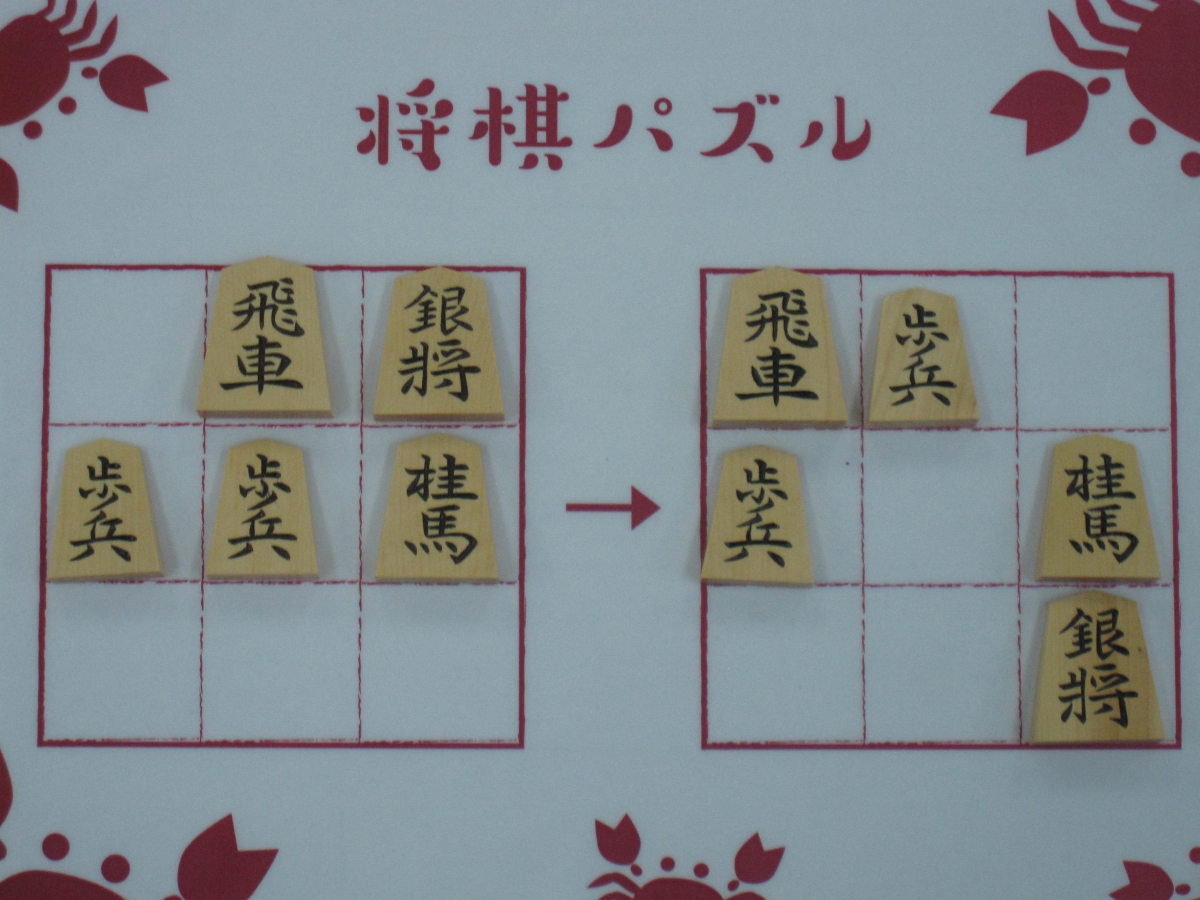 将棋パズル
飛車 銀将 飛車 歩兵
歩兵 歩兵 桂馬 歩兵 桂馬
銀将